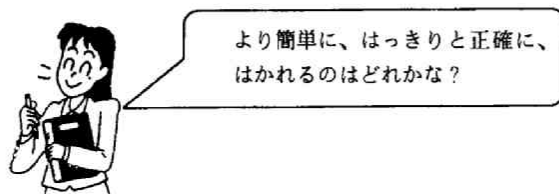 より簡単に、はっきりと正確に、
はかれるのはどれかな？